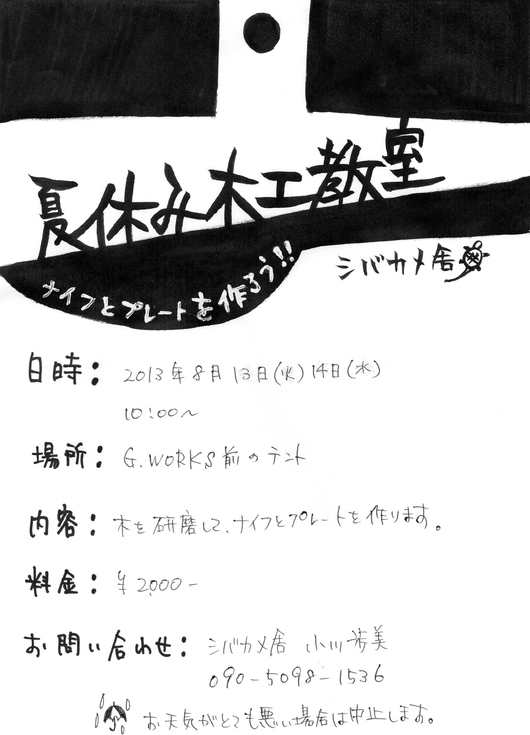 夏休み木工教室
ナイフとプレートを作ろう!!
シバカメ舎
日時: 2013年8月13日(火)14日(水)
10:00〜
場所: G.WORKS前のテント
内容: 木を研磨して、ナイフとプレートを作ります。
料金: ¥2000-
お問い合わせ: シバカメ舎 小川歩美
090-5098-1536
お天気がとても悪い場合は中止します。